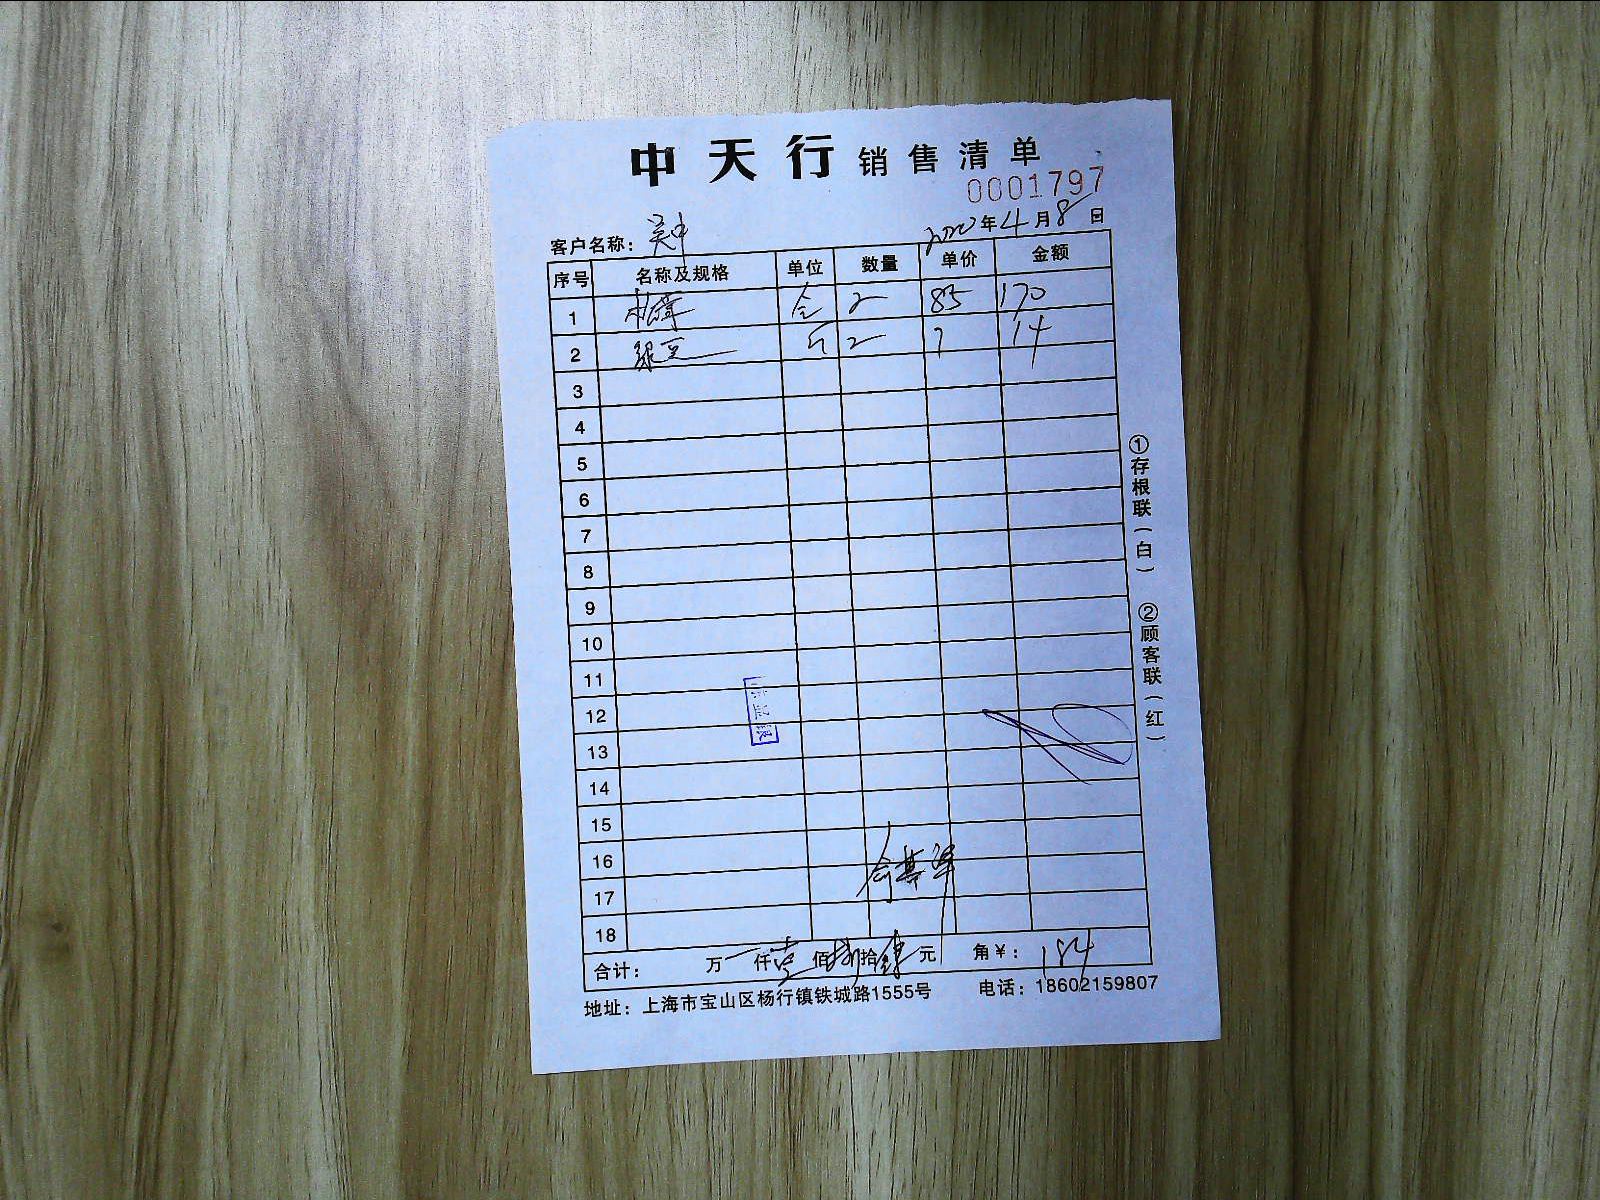 中天行销售清单
0001797
客户名称： 吴中 2020年4月8日
序号 名称及规格 单位 数量 单价 金额
1 2 85 170
2 绿豆 斤 2 7 14
3
4
5
6
7
8
9
10
11
12
13
14
15
16
17
18
合计： 万 仟壹佰捌拾肆元 角￥： 184
地址：上海市宝山区杨行镇铁城路1555号 电话：18602159807
①存根联(白) ②顾客联(红)